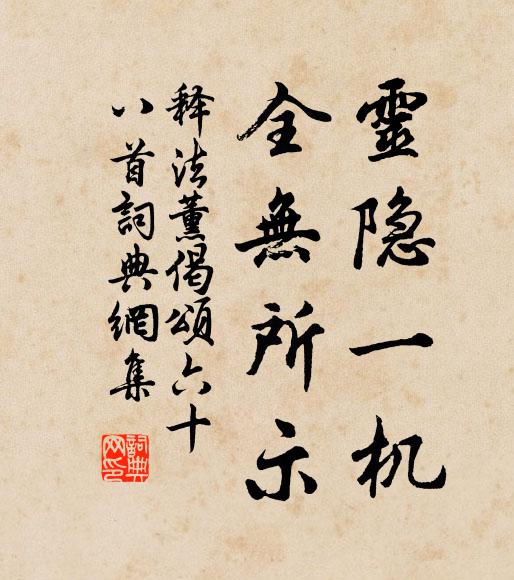 靈隐一机
全無所示
释法薰偈頌六十
八首詞典網集
詞典网印